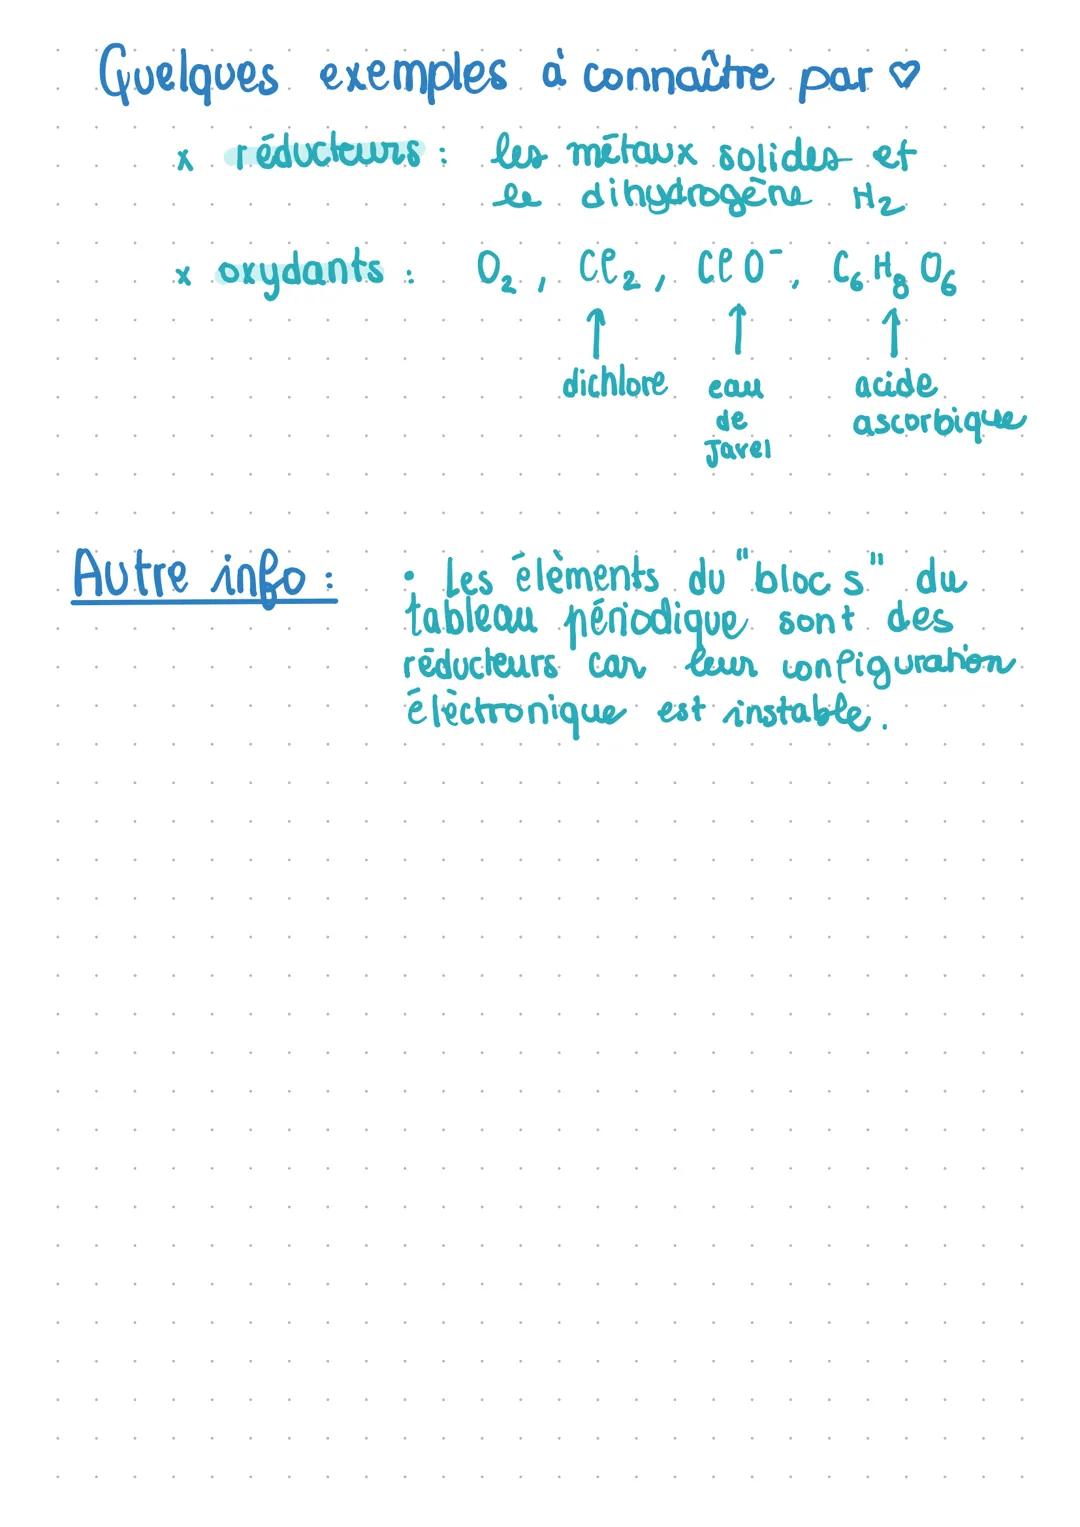 Quelques exemples à connaître par ♡
x réducteurs : les métaux solides et
le dihydrogène H₂
x oxydants : O₂, Cl₂, ClO⁻, C₆H₈O₆
↑ ↑ ↑
dichlore eau acide
de ascorbique
Javel
Autre info : • Les élèments du "bloc s" du
tableau périodique sont des
réducteurs car leur configuration
élèctronique est instable.